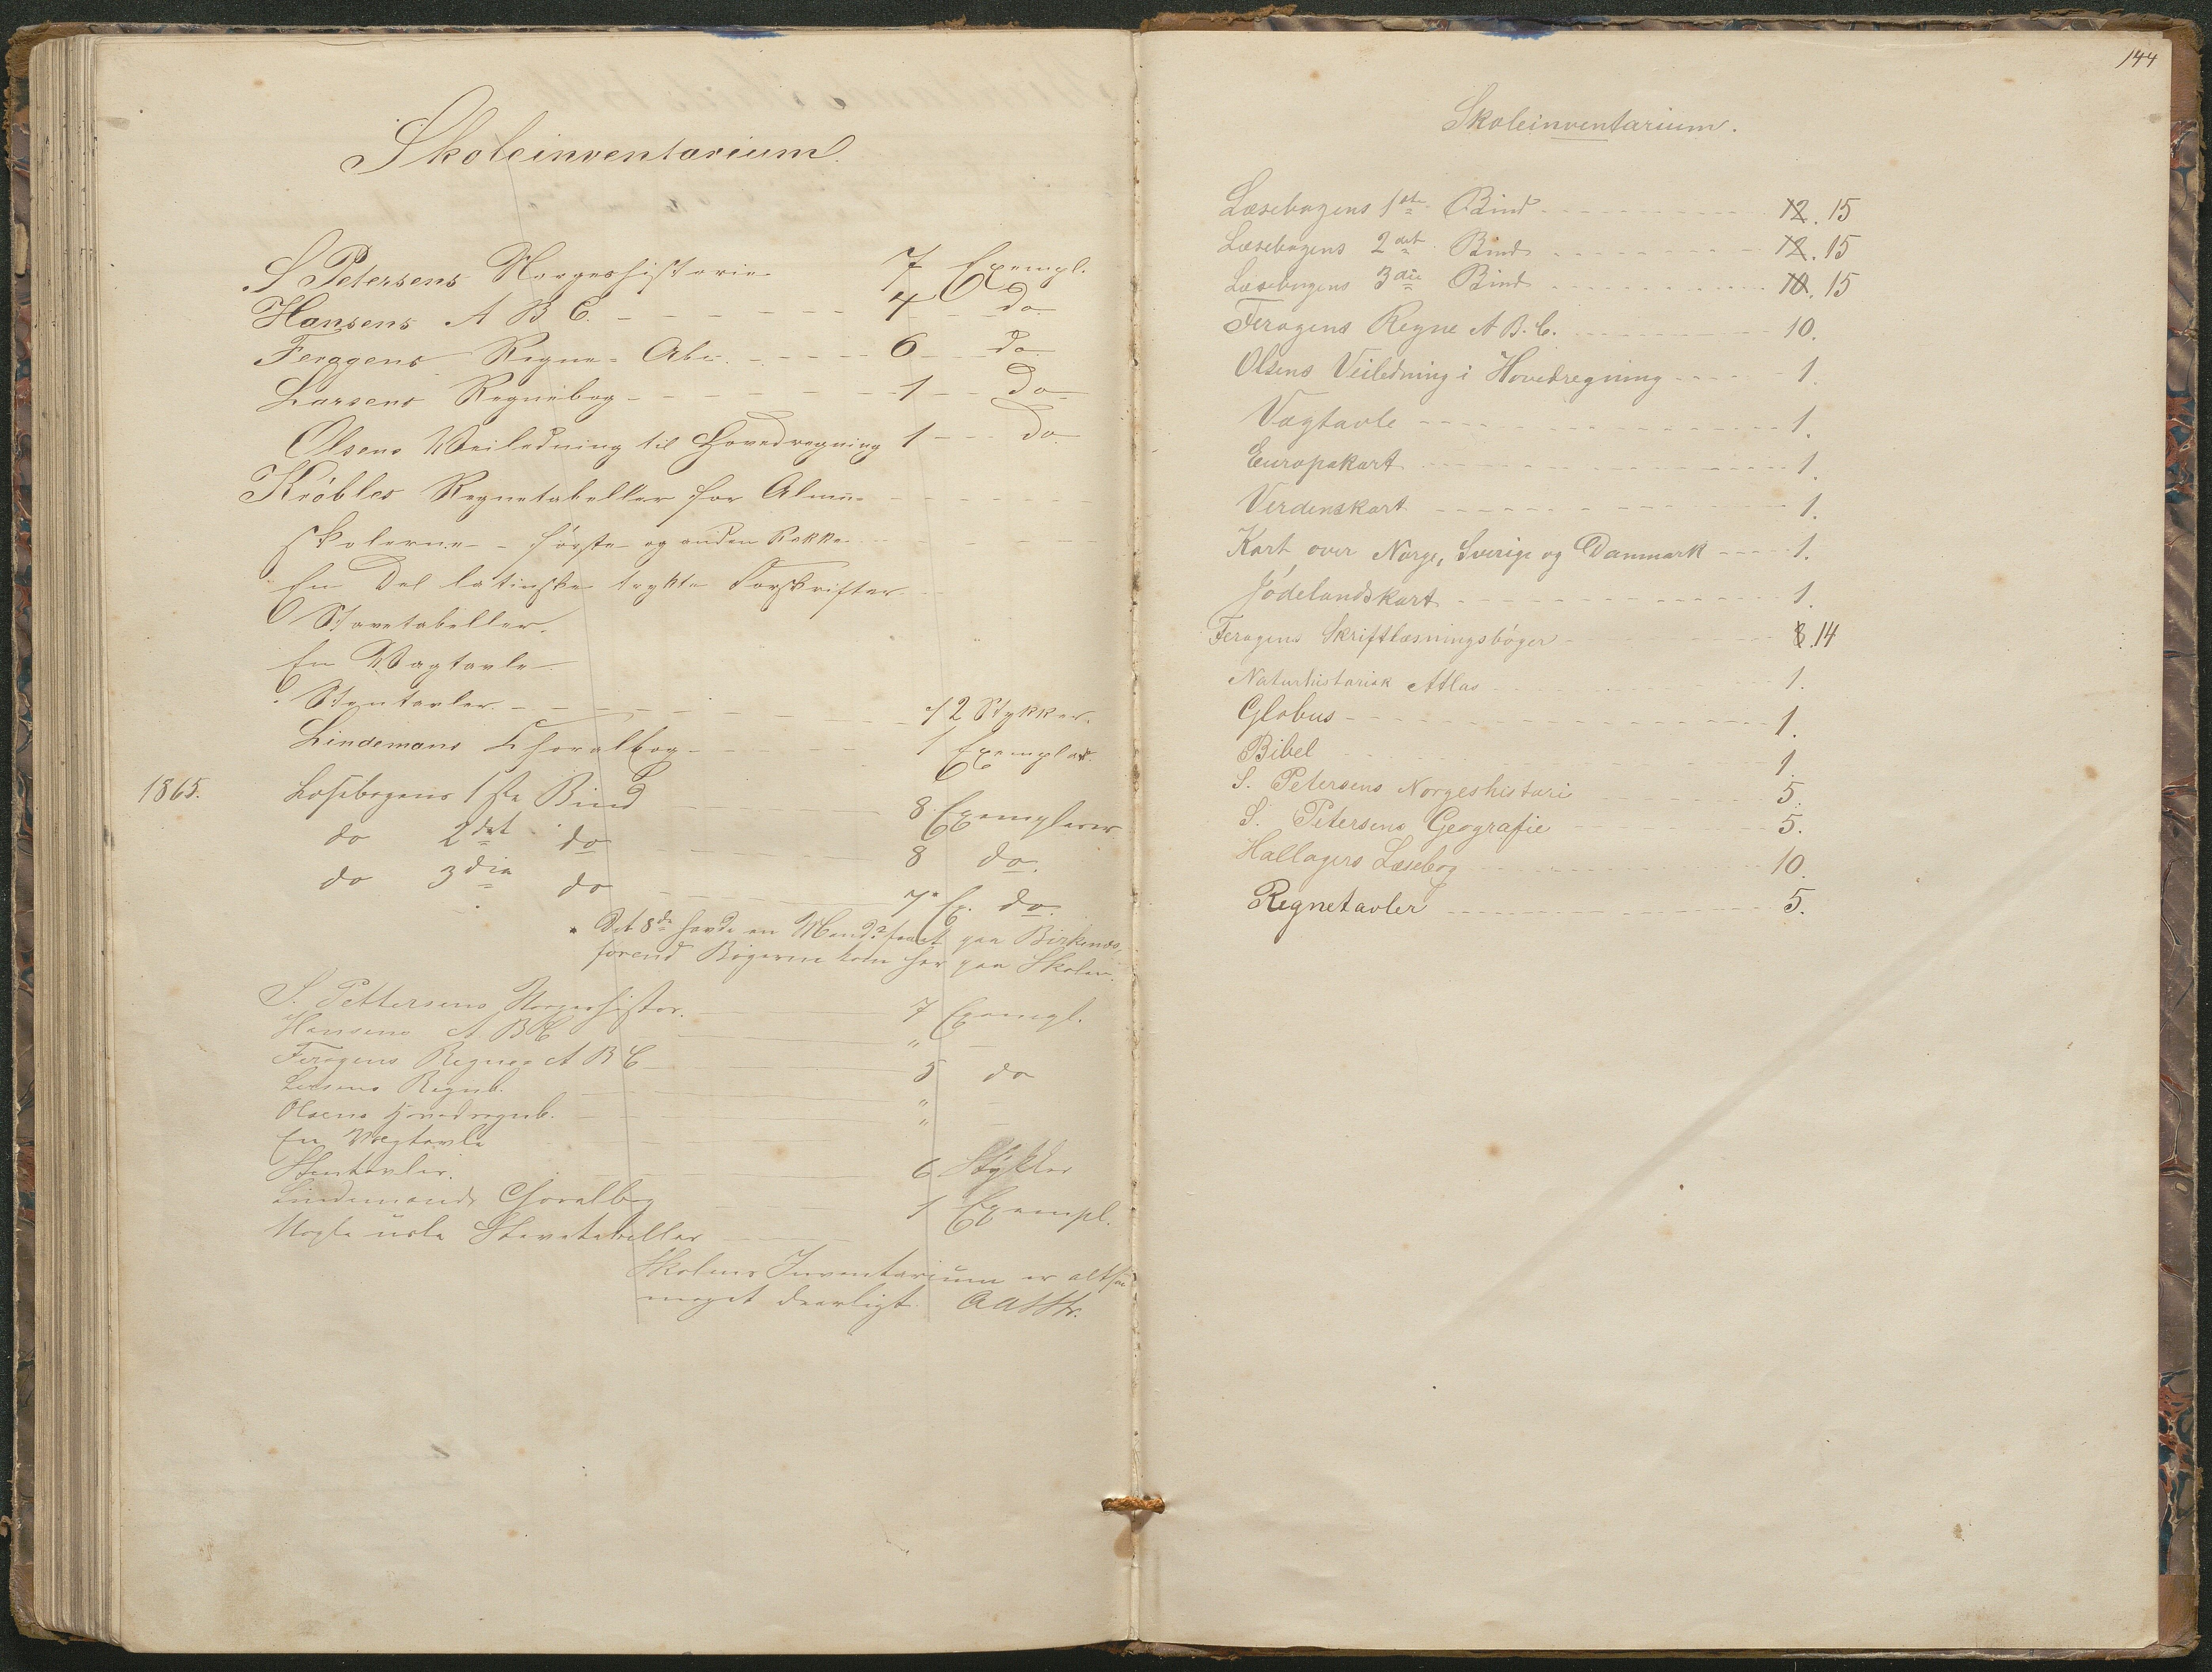 Skoleinventarium.
S Petersens Norgeshistorie 7 Exempl.
Hansens A B C. - - - - - - 4 - - do
Feragens Regne-Abc - - - - - 6 - - do
Larsens Regnebog - - - - - - 1 - - do
Olsens Veiledning til Hovedregning 1 - - - do
Kröbles Regnetabeller for Almue-
skolerne - første og anden Række
En Del latinske trykte Forskrifter
Stavetabeller.
En Vægtavle
Stentavler. - - - - - - 12 Stykker.
Lindemans Choralbog - - - - 1 Exemplar.
1865. Læsebogens 1ste Bind 8 Exemplarer
do 2det do 8 do.
do 3die do 7* Ex. do.
* Det 8de havde en Mand faaet paa Birkenæs,
forend Bøgerne kom her paa Skolen.
S. Pettersens Norgeshistor. 7 Exempl.
Hansens A B C " —
Feragens Regne A B C 5 do
Larsens Regneb. " —
Olsens Hovedregneb. " —
En Vægtavle
Stentavler. 6 Stykker
Lindemands Choralbog 1 Exempl.
Nogle usle Stavetabeller
Skolens Inventarium er altsaa
meget daarligt.
144
Skoleinventarium.
Læsebogens 1ste Bind - - - - 12. 15
Læsebogens 2det Bind - - - - 12. 15
Læsebogens 3die Bind - - - - 10. 15
Feragens Regne A B. C. - - - - 10.
Olsens Veiledning i Hovedregning - - - - 1.
Vægtavle - - - - 1.
Europakart - - - - 1.
Verdenskart - - - - 1.
Kart over Norge, Sverige og Danmark - - - - 1.
Jødelandskart - - - - 1.
Feragens Skriftlæsningsbøger - - - - 8. 14
Naturhistorisk Atlas - - - - 1.
Globus - - - - 1.
Bibel - - - - 1.
S. Petersens Norgeshistori - - - - 5.
S. Petersens Geografie - - - - 5.
Hallagers Læsebog - - - - 10.
Regnetavler - - - - 5.